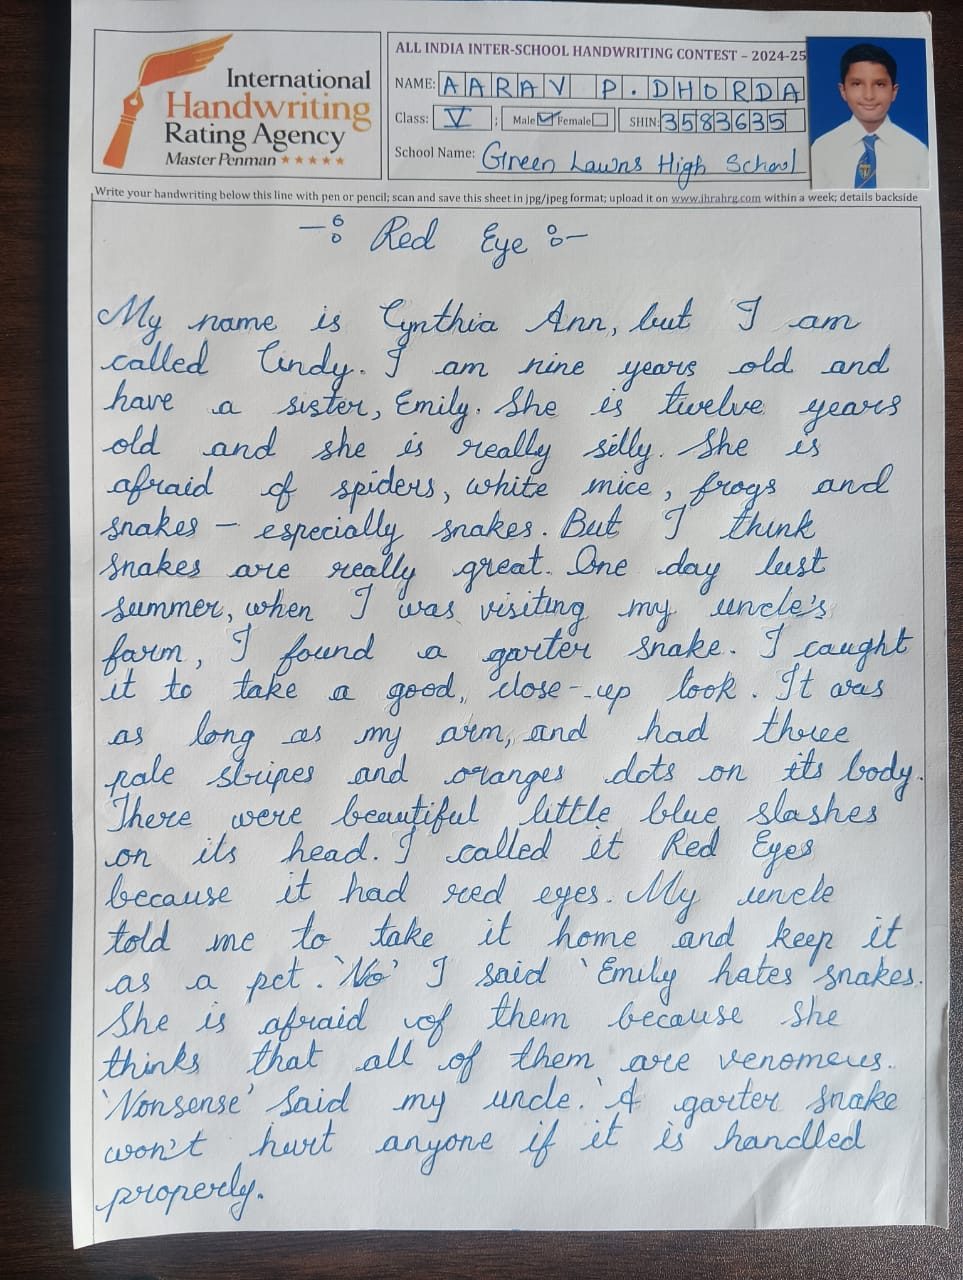 International
Handwriting
Rating Agency
Master Penman ★★★★★
ALL INDIA INTER-SCHOOL HANDWRITING CONTEST – 2024-25
NAME: AARAV P. DHORDA
Class: V ; Male ☑ Female ☐ SHIN: 3583635
School Name: Green Lawns High School
Write your handwriting below this line with pen or pencil; scan and save this sheet in jpg/jpeg format; upload it on www.ihrahrg.com within a week; details backside
Red Eye
My name is Cynthia Ann, but I am
called Cindy. I am nine years old and
have a sister, Emily. She is twelve years
old and she is really silly. She is
afraid of spiders, white mice, frogs and
snakes – especially snakes. But I think
snakes are really great. One day last
summer, when I was visiting my uncle's
farm, I found a garter snake. I caught
it to take a good, close-up look. It was
as long as my arm, and had three
pale stripes and oranges dots on its body.
There were beautiful little blue slashes
on its head. I called it Red Eyes
because it had red eyes. My uncle
told me to take it home and keep it
as a pet. 'No' I said 'Emily hates snakes.
She is afraid of them because she
thinks that all of them are venomous.
'Nonsense' said my uncle. 'A garter snake
won't hurt anyone if it is handled
properly.